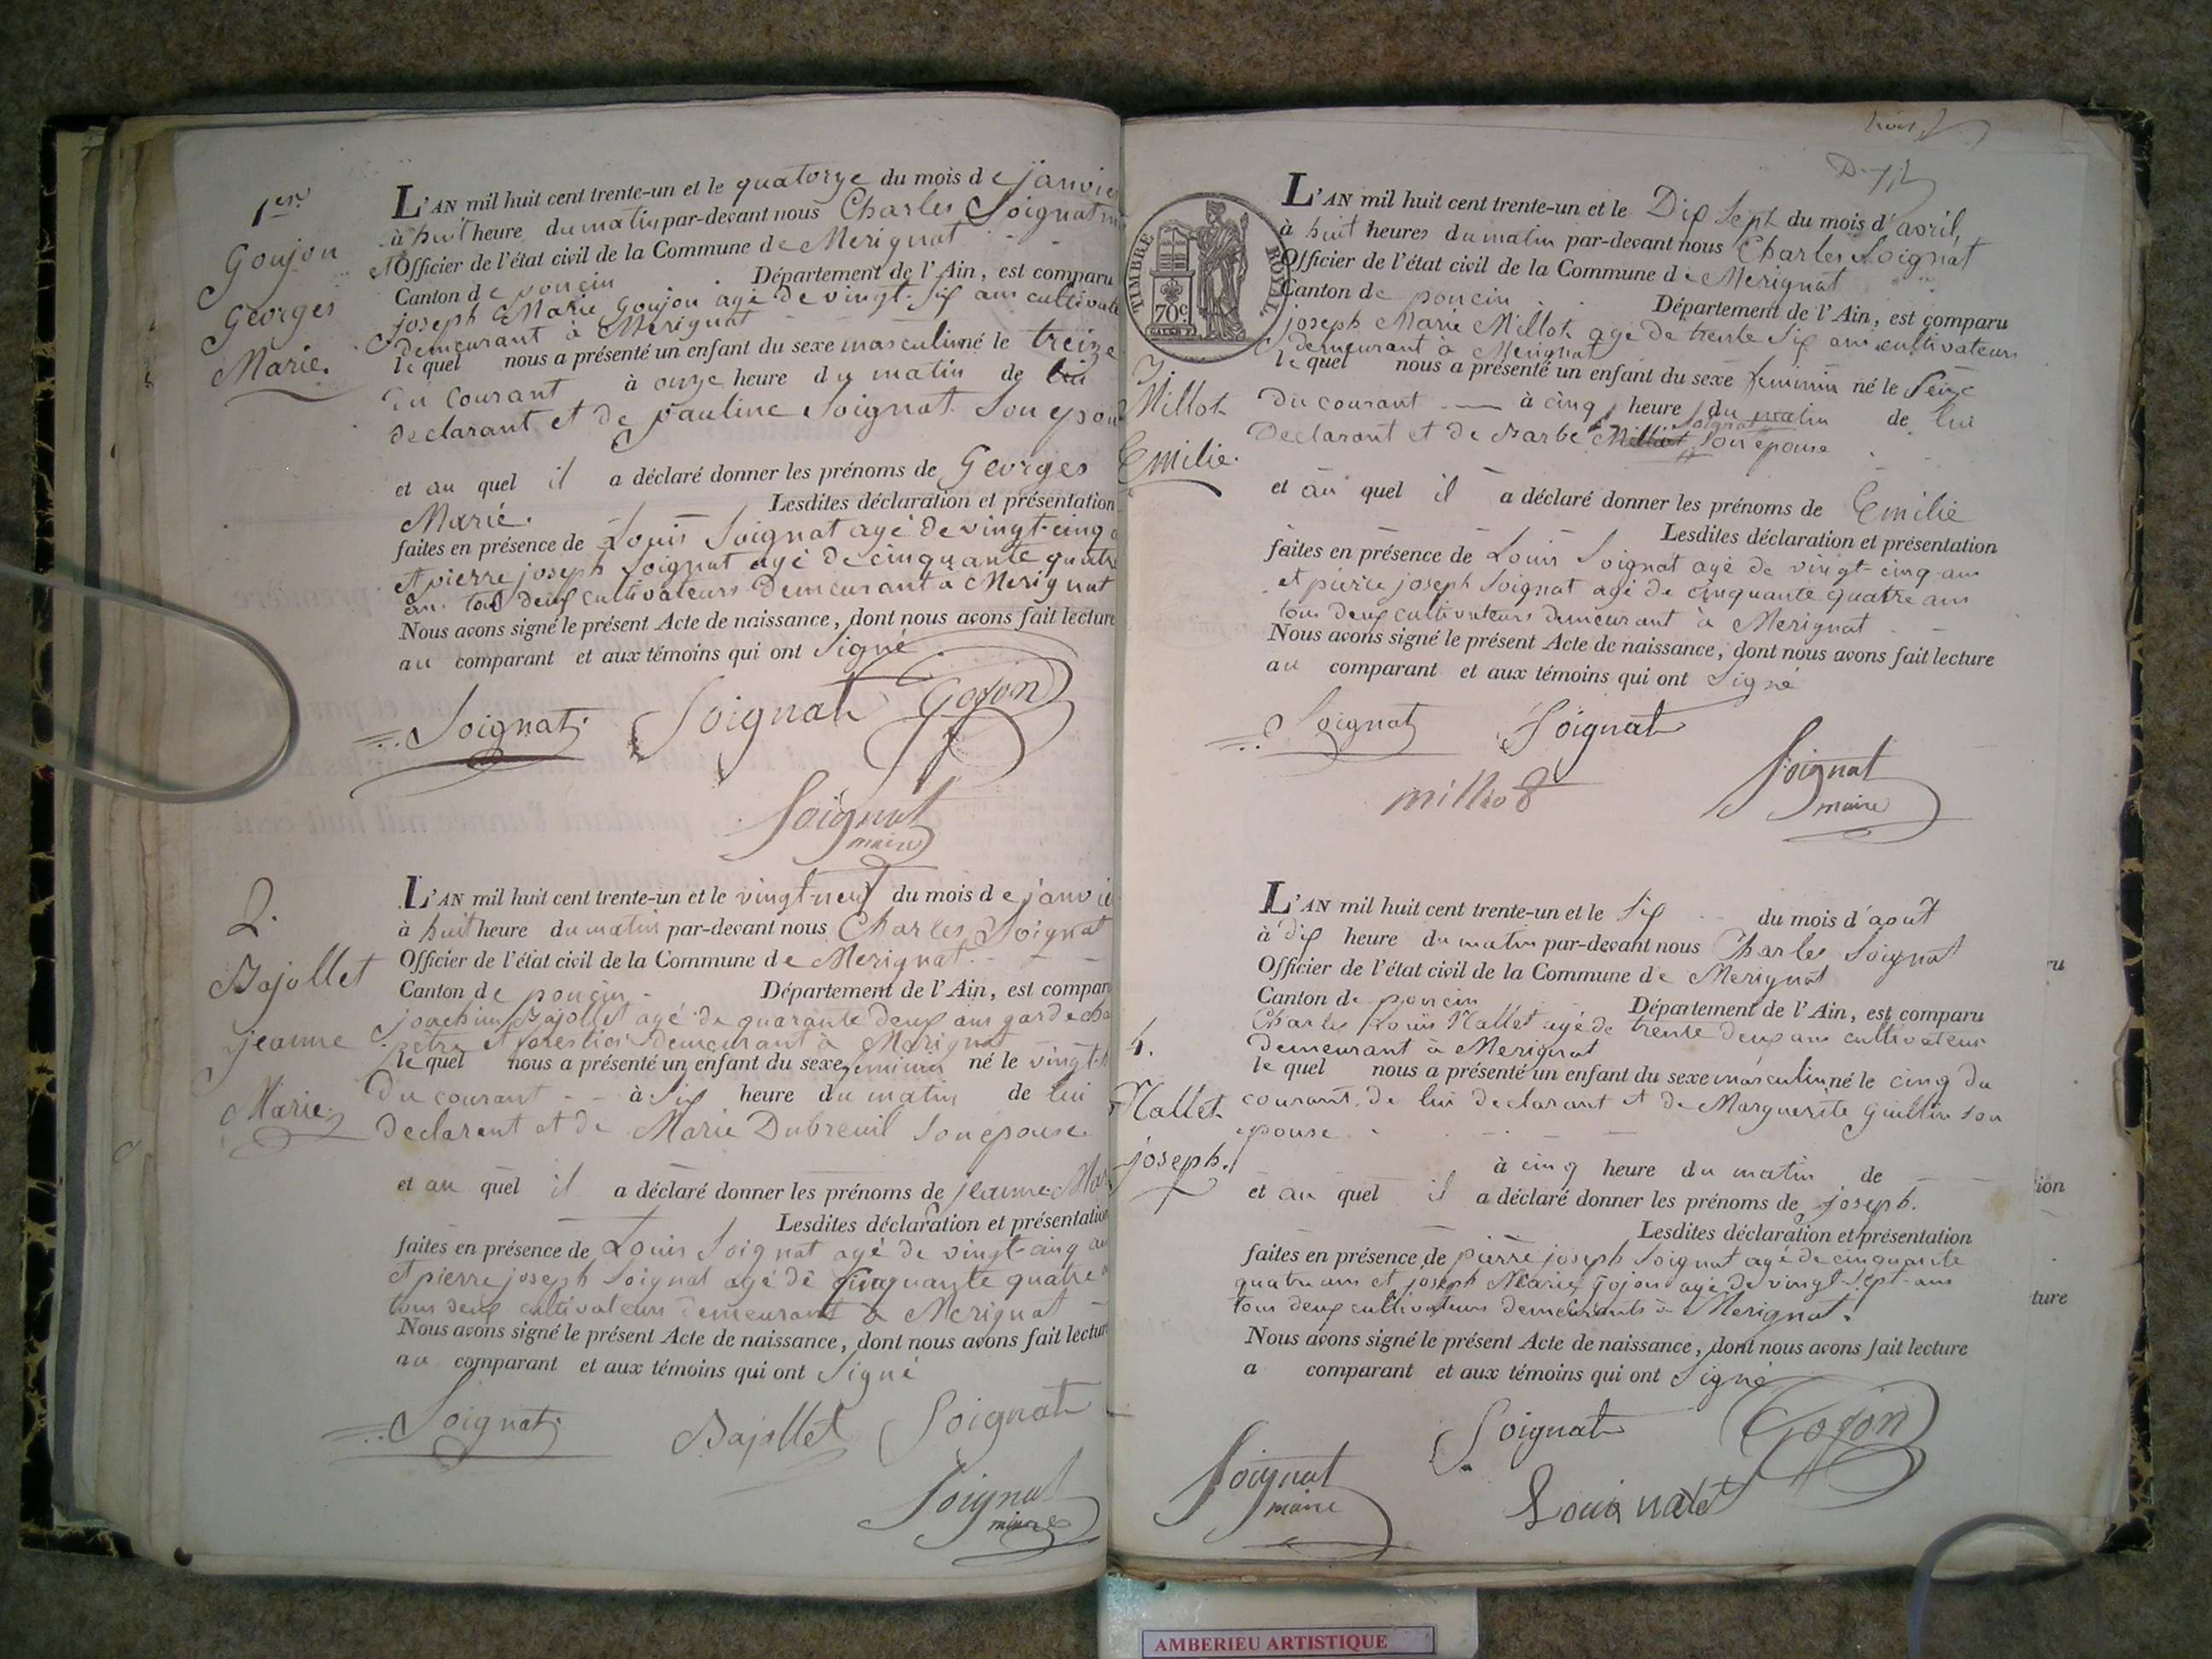 1er
Goujon
Georges
Marie.
L'AN mil huit cent trente-un et le quatorze du mois de janvier
à huit heure du matin par-devant nous Charles Soignat
Officier de l'état civil de la Commune de Merignat
Canton de poncin Département de l'Ain, est comparu
joseph Marie Goujon agé de vingt-six ans cultivate
demeurant à Merignat
le quel nous a présenté un enfant du sexe masculin né le treize
du courant à onze heure du matin de lui
declarant et de pauline Soignat Son epou
et au quel il a déclaré donner les prénoms de Georges
Marie. Lesdites déclaration et présentation
faites en présence de Louis Soignat agé de vingt-cinq
et pierre joseph Soignat agé de cinquante quatre
ans tous deux cultivateurs Demeurant à Merignat
Nous avons signé le présent Acte de naissance, dont nous avons fait lecture
au comparant et aux témoins qui ont Signé
Soignat Soignat Gojon
Soignat
maire
2.
Bajollet
jeanne
Marie
L'AN mil huit cent trente-un et le vingt-neuf du mois de janvie
à huit heure du matin par-devant nous Charles Soignat
Officier de l'état civil de la Commune de Merignat.
Canton de poncin Département de l'Ain, est compar
joachim Bajollet agé de quarante deux ans garde cha
pêtre et forestier demeurant à Merignat
le quel nous a présenté un enfant du sexe feminin né le vingt-h
du courant à Six heure du matin de lui
declarent et de Marie Dubreuil Son epouse
et au quel il a déclaré donner les prénoms de jeanne Mar
Lesdites déclaration et présentation
faites en présence de Louis Soignat agé de vingt-cinq an
et pierre joseph Soignat agé de cinquante quatre
tous deux cultivateurs demeurant à Merignat
Nous avons signé le présent Acte de naissance, dont nous avons fait lectur
au comparant et aux témoins qui ont Signé
Soignat Bajollet Soignat
Soignat
maire
TIMBRE ROYAL
70c.
3.
Millot
Emilie.
L'AN mil huit cent trente-un et le Dix Sept du mois d'avril,
à huit heures du matin par-devant nous Charles Soignat
Officier de l'état civil de la Commune de Merignat
Canton de poncin Département de l'Ain, est comparu
joseph Marie Millot agé de trente Six ans cultivateur
demeurant à Merignat
le quel nous a présenté un enfant du sexe feminin né le Seize
du courant à cinq heure du matin de lui
Soignat
Declarant et de Barbe Millot Son epouse
et au quel il a déclaré donner les prénoms de Emilie
Lesdites déclaration et présentation
faites en présence de Louis Soignat agé de vingt-cinq ans
et pierre joseph Soignat agé de cinquante quatre ans
tous deux cultivateurs demeurant à Merignat
Nous avons signé le présent Acte de naissance, dont nous avons fait lecture
au comparant et aux témoins qui ont Signé
Soignat Soignat
milliot Soignat
maire
4.
Nallet
joseph.
L'AN mil huit cent trente-un et le Six du mois d'août
à dix heure du matin par-devant nous Charles Soignat
Officier de l'état civil de la Commune de Merignat
Canton de poncin Département de l'Ain, est comparu
Charles Louis Nallet agé de trente deux ans cultivateur
demeurant à Merignat
le quel nous a présenté un enfant du sexe masculin né le cinq du
courant, de lui declarant et de Marguerite Guillin son
epouse
à cinq heure du matin de
et au quel il a déclaré donner les prénoms de joseph.
Lesdites déclaration et présentation
faites en présence de pierre joseph Soignat agé de cinquante
quatre ans et joseph Marie Gojon agé de vingt-Sept-ans
tous deux cultivateurs demeurants à Merignat.
Nous avons signé le présent Acte de naissance, dont nous avons fait lecture
a comparant et aux témoins qui ont Signé
Soignat Gojon
Soignat
maire Louis nalet
ru
ion
ture
AMBERIEU ARTISTIQUE